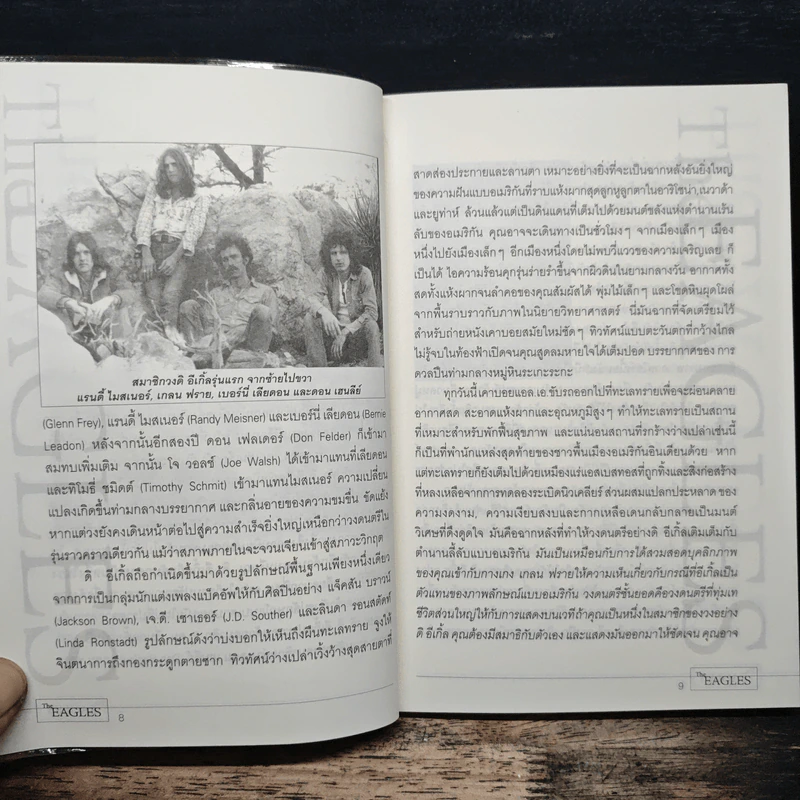 สมาชิกวงดิ อีเกิ้ลรุ่นแรก จากซ้ายไปขวา
แรนดี้ ไมสเนอร์, เกลน ฟราย, เบอร์นี่ เลียดอน และดอน เฮนลีย์
(Glenn Frey), แรนดี้ ไมสเนอร์ (Randy Meisner) และเบอร์นี่ เลียดอน (Bernie
Leadon) หลังจากนั้นอีกสองปี ดอน เฟลเดอร์ (Don Felder) ก็เข้ามา
สมทบเพิ่มเติม จากนั้น โจ วอลซ์ (Joe Walsh) ได้เข้ามาแทนที่เลียดอน
และทิโมธี่ ชมิดต์ (Timothy Schmit) เข้ามาแทนไมสเนอร์ ความเปลี่ยน
แปลงเกิดขึ้นท่ามกลางบรรยากาศ และกลิ่นอายของความขมขื่น ขัดแย้ง
หากแต่วงยังคงเดินหน้าต่อไปสู่ความสำเร็จยิ่งใหญ่เหนือกว่าวงดนตรีใน
รุ่นราวคราวเดียวกัน แม้ว่าสภาพภายในจะจวนเจียนเข้าสู่สภาวะวิกฤต
ดิ อีเกิ้ลถือกำเนิดขึ้นมาด้วยรูปลักษณ์พื้นฐานเพียงหนึ่งเดียว
จากการเป็นกลุ่มนักแต่งเพลงแบ็คอัพให้กับศิลปินอย่าง แจ็คสัน บราวน์
(Jackson Brown), เจ.ดี. เซาเธอร์ (J.D. Souther) และลินดา รอนสตัดท์
(Linda Ronstadt) รูปลักษณ์ดังว่าบ่งบอกให้เห็นถึงผืนทะเลทราย จูงให้
จินตนาการถึงกองกระดูกตายซาก ทิวทัศน์ว่างเปล่าเวิ้งว้างสุดสายตาที่
The EAGLES 8
สาดส่องประกายและลานตา เหมาะอย่างยิ่งที่จะเป็นฉากหลังอันยิ่งใหญ่
ของความฝันแบบอเมริกันที่ราบแห้งผากสุดลูกหูลูกตาในอาริโซน่า,เนวาด้า
และยูท่าห์ ล้วนแล้วแต่เป็นดินแดนที่เต็มไปด้วยมนต์ขลังแห่งตำนานเร้น
ลับของอเมริกัน คุณอาจจะเดินทางเป็นชั่วโมงๆ จากเมืองเล็กๆ เมือง
หนึ่งไปยังเมืองเล็กๆ อีกเมืองหนึ่งโดยไม่พบวี่แววของความเจริญเลย ก็
เป็นได้ ไอความร้อนคุกรุ่นร่ายรำขึ้นจากผิวดินในยามกลางวัน อากาศทั้ง
สดทั้งแห้งผากจนลำคอของคุณสัมผัสได้ พุ่มไม้เล็กๆ และโขดหินผุดโผล่
จากพื้นราบราวกับภาพในนิยายวิทยาศาสตร์ นี่มันฉากที่จัดเตรียมไว้
สำหรับถ่ายหนังเคาบอยสมัยใหม่ชัดๆ ทิวทัศน์แบบตะวันตกที่กว้างไกล
ไม่รู้จบในท้องฟ้าเปิดจนคุณสูดลมหายใจได้เต็มปอด บรรยากาศของ การ
ดวลปืนท่ามกลางหมู่หินระเกะระกะ
ทุกวันนี้เคาบอยแอล.เอ.ขับรถออกไปที่ทะเลทรายเพื่อจะผ่อนคลาย
อากาศสด สะอาดแห้งผากและอุณหภูมิสูงๆ ทำให้ทะเลทรายเป็นสถาน
ที่เหมาะสำหรับพักฟื้นสุขภาพ และแน่นอนสถานที่รกร้างว่างเปล่าเช่นนี้
ก็เป็นที่พำนักแหล่งสุดท้ายของชาวพื้นเมืองอเมริกันอินเดียนด้วย หาก
แต่ทะเลทรายก็ยังเต็มไปด้วยเหมืองแร่แอสเบสทอสที่ถูกทิ้งและสิ่งก่อสร้าง
ที่หลงเหลือจากการทดลองระเบิดนิวเคลียร์ ส่วนผสมแปลกประหลาด ของ
ความงดงาม, ความเงียบสงบและกากเหลือเดนกลับกลายเป็นมนต์
วิเศษที่ดึงดูดใจ มันคือฉากหลังที่ทำให้วงดนตรีอย่างดิ อีเกิ้ลเติมเต็มกับ
ตำนานลี้ลับแบบอเมริกัน มันเป็นเหมือนกับการได้สวมสอดบุคลิกภาพ
ของคุณเข้ากับกางเกง เกลน ฟรายให้ความเห็นเกี่ยวกับกรณีที่อีเกิ้ลเป็น
ตัวแทนของภาพลักษณ์แบบอเมริกัน วงดนตรีชั้นยอดคือวงดนตรีที่ทุ่มเท
ชีวิตส่วนใหญ่ให้กับการแสดงบนเวทีถ้าคุณเป็นหนึ่งในสมาชิกของวงอย่าง
ดิ อีเกิ้ล คุณต้องมีสมาธิกับตัวเอง และแสดงมันออกมาให้ชัดเจน คุณอาจ
9 The EAGLES